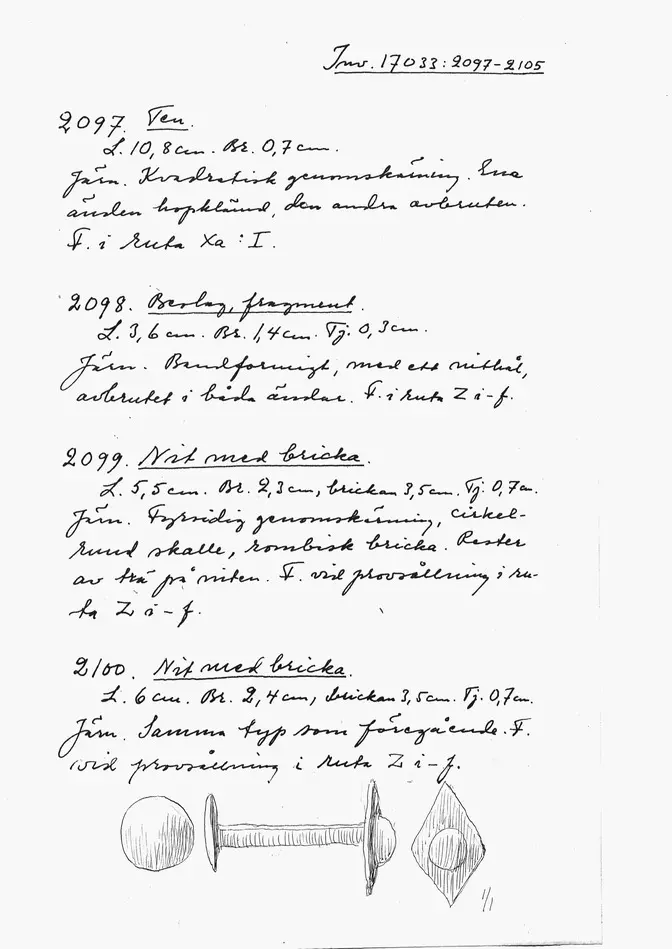 Inv. 17033:2097-2105
2097. Ten.
L. 10,8 cm. Br. 0,7 cm.
Järn. Kvadratisk genomskärning. Ena
änden hopklämd, den andra avbruten.
F. i ruta Xa:I.
2098. Beslag, fragment.
L. 3,6 cm. Br. 1,4 cm. Tj. 0,3 cm.
Järn. Bandformigt, med ett nithål,
avbrutet i båda ändar. F. i ruta Z i-f.
2099. Nit med bricka.
L. 5,5 cm. Br. 2,3 cm, brickan 3,5 cm. Tj. 0,7 cm.
Järn. Fyrsidig genomskärning, cirkel-
rund skalle, rombisk bricka. Rester
av trä på niten. F. vid provsållning i ru-
ta Z i-f.
2100. Nit med bricka.
L. 6 cm. Br. 2,4 cm, brickan 3,5 cm. Tj. 0,7 cm.
Järn. Samma typ som föregående. F.
vid provsållning i ruta Z i-f.
1/1